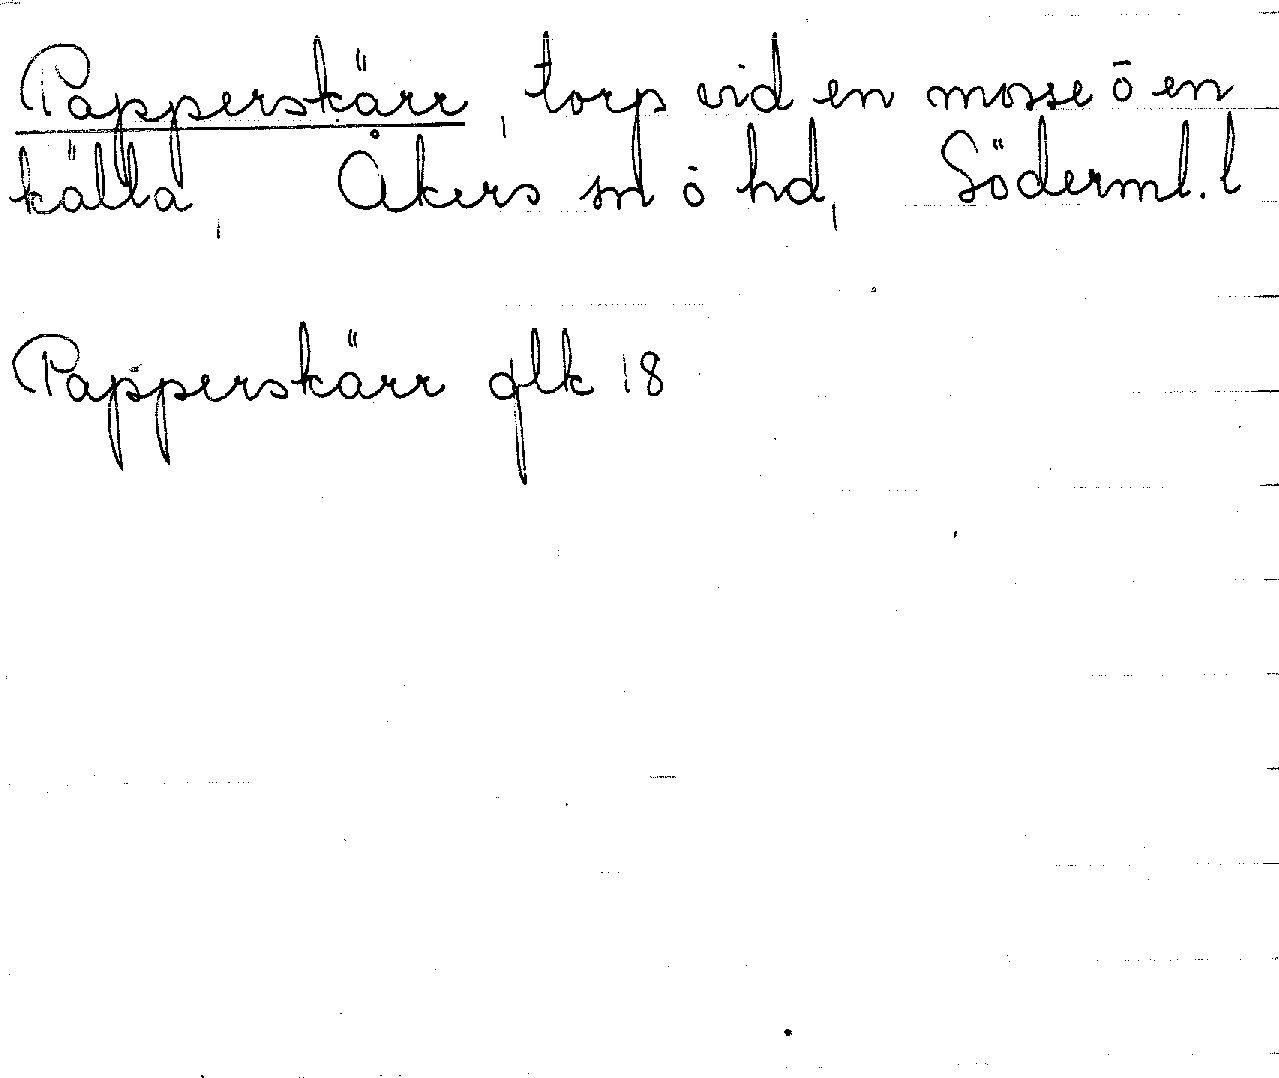 Papperskärr, torp vid en mosse ō en
källa, Åkers sn ō hd, Söderml. l
Papperskärr glk 18